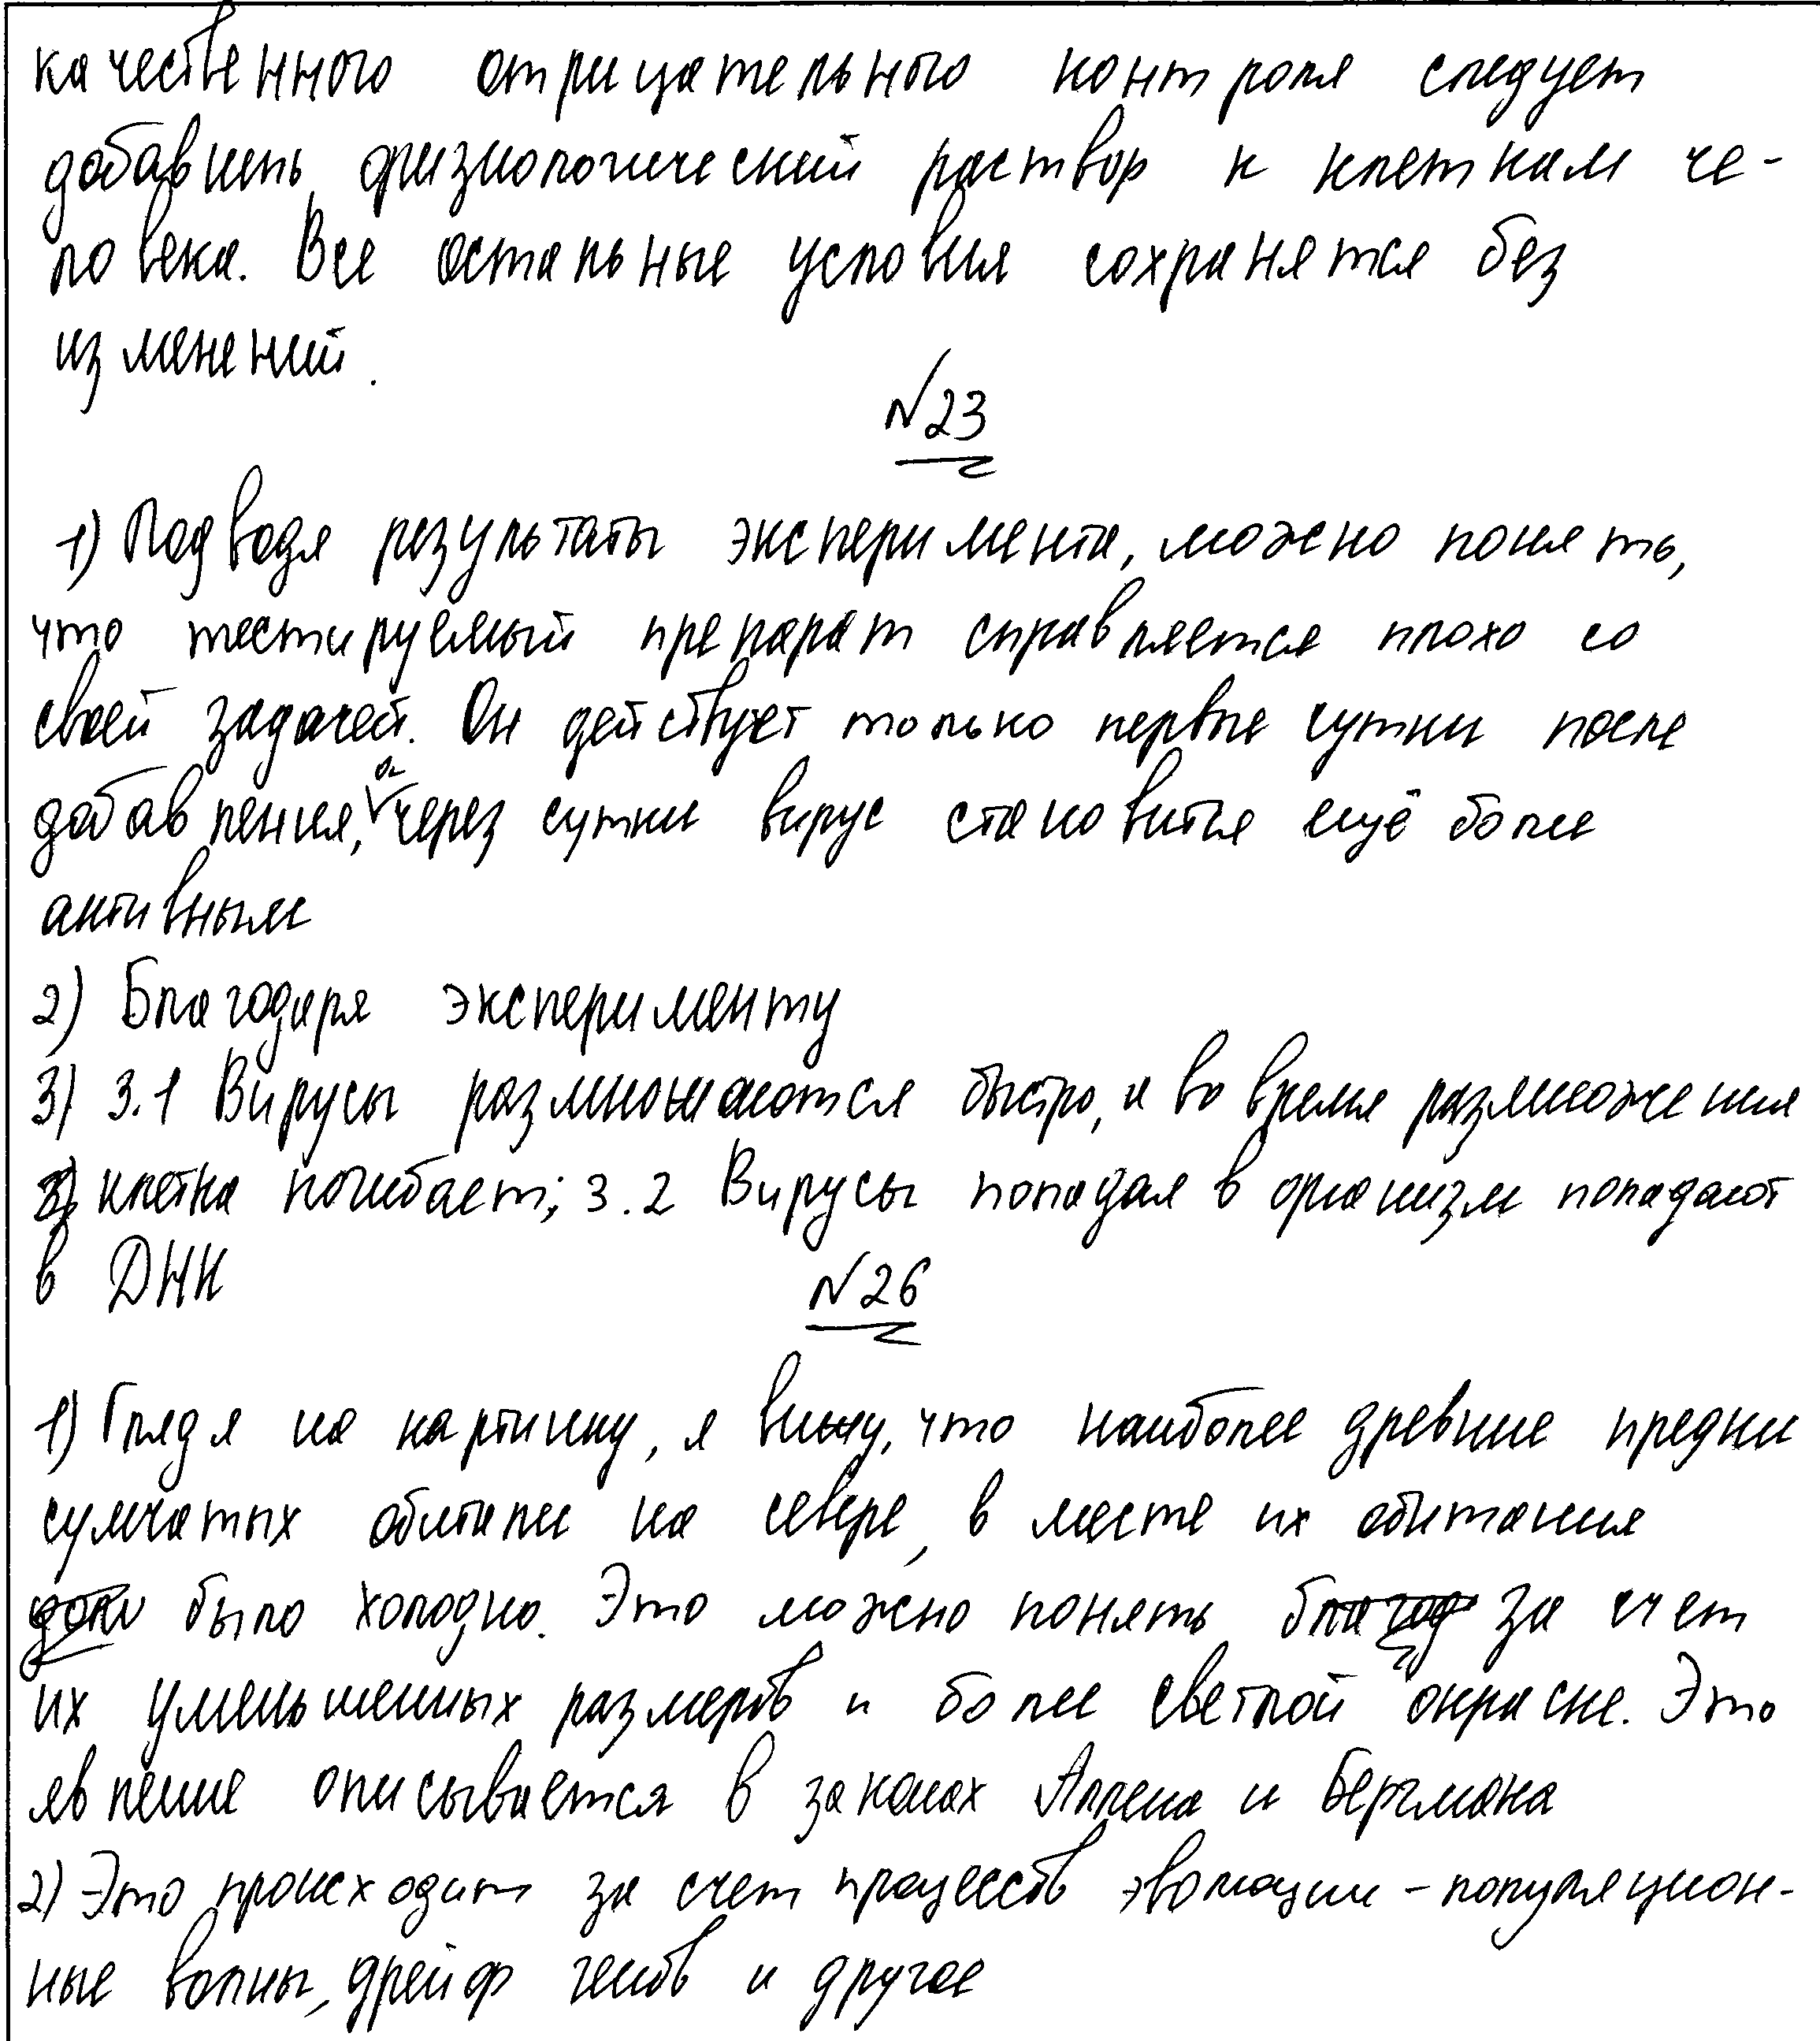 качественного отрицательного контроля следует
добавить физиологический раствор к клеткам че-
ловека. Все остальные условия сохранятся без
изменений.
№23
1) Подводя результаты эксперимента, можно понять,
что тестируемый препарат справляется плохо со
своей задачей. Он действует только первые сутки после
добавления, а через сутки вирус становится ещё более
активным
2) Благодаря эксперименту
3) 3.1 Вирусы размножаются быстро, и во время размножения
клетка погибает; 3.2 Вирусы попадая в организм попадают
в ДНК
№26
1) Глядя на картинку, я вижу, что наиболее древние предки
сумчатых обитали на севере, в месте их обитания
было холодно. Это можно понять за счет
их уменьшенных размеров и более светлой окраске. Это
явление описывается в законах Аллена и Бергмана
2) Это происходит за счет процессов эволюции - популяцион-
ные волны, дрейф генов и другое